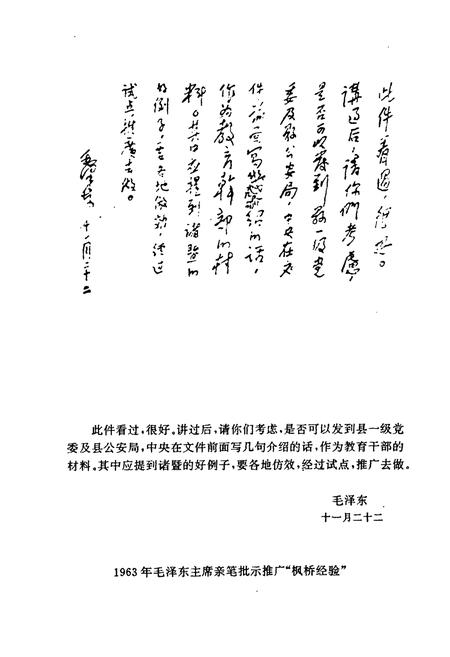 此件看过，很好。
讲过后，请你们考虑，
是否可以发到县一级党
委及县公安局，中央在文
件前面写几句介绍的话，
作为教育干部的材
料。其中应提到诸暨的
好例子，要各地仿效，经过
试点，推广去做。
毛泽东 十一月二十二
此件看过，很好。讲过后，请你们考虑，是否可以发到县一级党
委及县公安局，中央在文件前面写几句介绍的话，作为教育干部的
材料。其中应提到诸暨的好例子，要各地仿效，经过试点，推广去做。
毛泽东
十一月二十二
1963年毛泽东主席亲笔批示推广“枫桥经验”